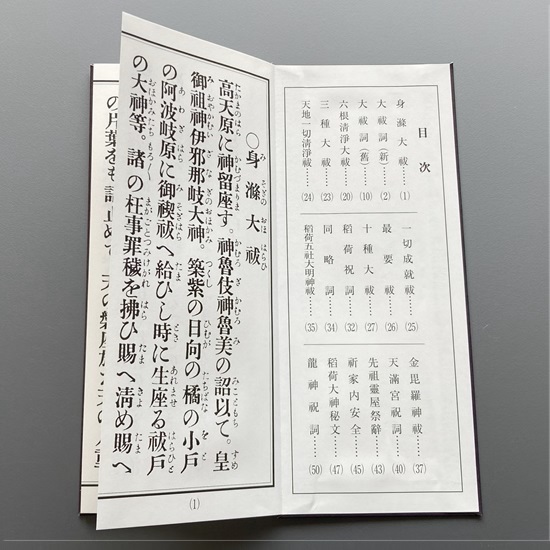 目次
身滌大祓……(1)
大祓詞(新)……(2)
大祓詞(舊)……(10)
六根清淨大祓……(20)
三種大祓……(23)
天地一切清淨祓……(24)
一切成就祓……(25)
最要祓……(26)
十種大祓……(27)
稻荷祝詞……(32)
同略詞……(34)
稻荷五社大明神祓……(35)
金毘羅神祓……(37)
天滿宮祝詞……(40)
先祖靈屋祭辭……(43)
祈家内安全……(45)
稻荷大神秘文……(47)
龍神祝詞……(50)
〇身滌大祓
高天原に神留座す。神魯伎神魯美の詔以て。皇
御祖神伊邪那岐大神。築紫の日向の橘の小戸
の阿波岐原に御禊祓へ給ひし時に生座る祓戸
の大神等。諸の枉事罪穢を拂ひ賜へ淸め賜へ
(1)